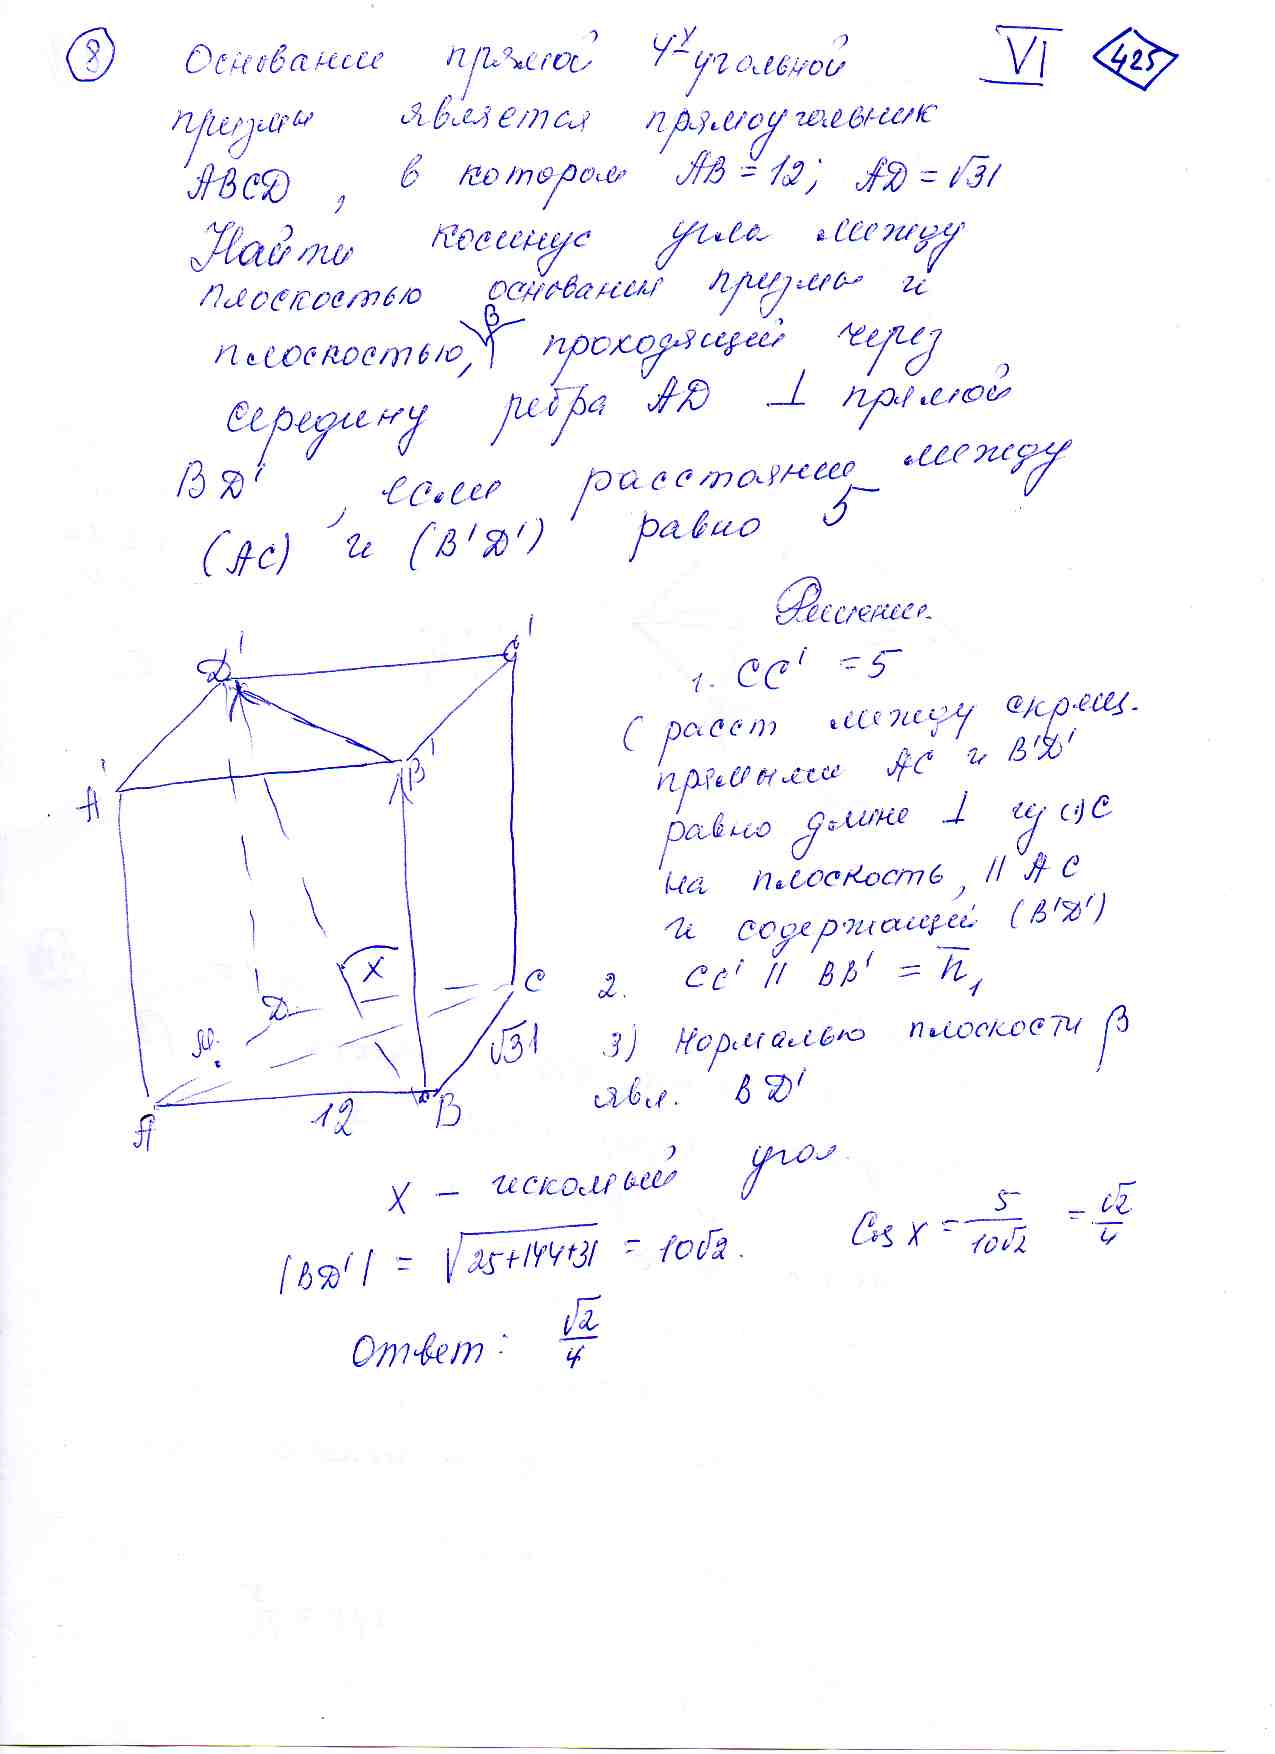 8 Основание прямой 4-х угольной VI 425
призмы является прямоугольник
ABCD, в котором AB = 12; AD = √31
Найти косинус угла между
плоскостью основания призмы и
плоскостью, β проходящей через
середину ребра AD ⊥ прямой
BD', если расстояние между
(AC) и (B'D') равно 5
Решение.
1. CC' = 5
(расст между скрещ.
прямыми AC и B'D'
равно длине ⊥ из (·)C
на плоскость, || AC
и содержащей (B'D')
2. CC' || BB' = n̅₁
3) Нормалью плоскости β
явл. BD'
D'
C'
A'
B'
X
D
C
M
√31
A
12
B
X – искомый угол.
|BD'| = √(25+144+31) = 10√2. Cos X = 5/(10√2) = √2/4
Ответ: √2/4